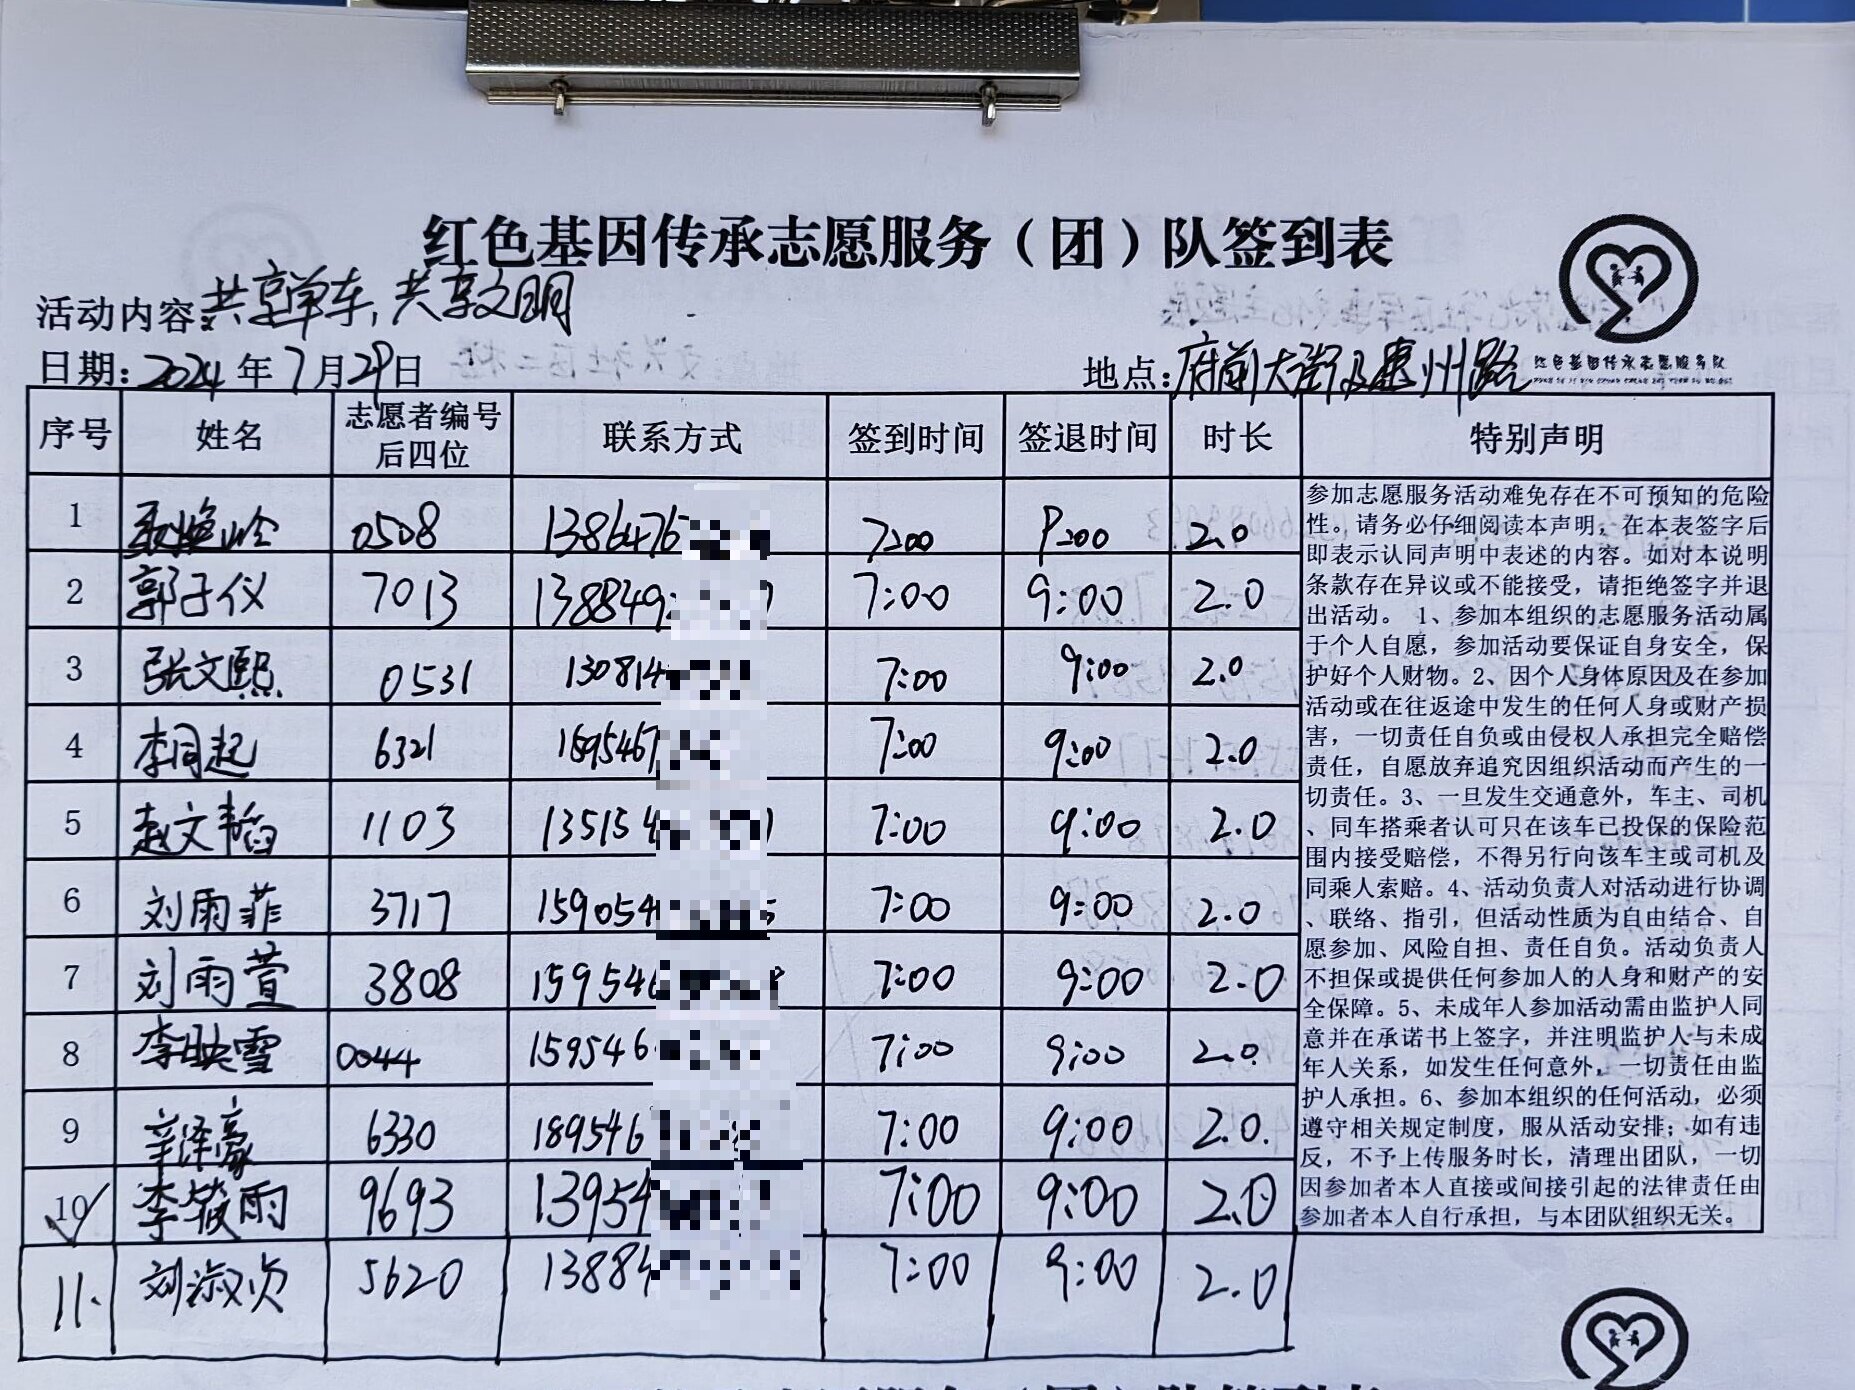 红色基因传承志愿服务（团）队签到表
活动内容:共享单车,共享文明
日期:2024年7月29日
地点:府前大街及惠州路
红色基因传承志愿服务队
序号 姓名 志愿者编号后四位 联系方式 签到时间 签退时间 时长 特别声明
1 0508 1386476 7:00 9:00 2.0
2 郭子仪 7013 138849 7:00 9:00 2.0
3 张文熙 0531 130814 7:00 9:00 2.0
4 李同起 6321 1595467 7:00 9:00 2.0
5 赵文韬 1103 135154 7:00 9:00 2.0
6 刘雨菲 3717 1590541 7:00 9:00 2.0
7 刘雨萱 3808 159546 7:00 9:00 2.0
8 李映雪 0044 159546 7:00 9:00 2.0
9 辛泽豪 6330 189546 7:00 9:00 2.0.
10 李筱雨 9693 13954 7:00 9:00 2.0
11. 刘淑贞 5620 1388 7:00 9:00 2.0
参加志愿服务活动难免存在不可预知的危险
性。请务必仔细阅读本声明，在本表签字后
即表示认同声明中表述的内容。如对本说明
条款存在异议或不能接受，请拒绝签字并退
出活动。 1、参加本组织的志愿服务活动属
于个人自愿，参加活动要保证自身安全，保
护好个人财物。2、因个人身体原因及在参加
活动或在往返途中发生的任何人身或财产损
害，一切责任自负或由侵权人承担完全赔偿
责任，自愿放弃追究因组织活动而产生的一
切责任。3、一旦发生交通意外，车主、司机
、同车搭乘者认可只在该车已投保的保险范
围内接受赔偿，不得另行向该车主或司机及
同乘人索赔。4、活动负责人对活动进行协调
、联络、指引，但活动性质为自由结合、自
愿参加、风险自担、责任自负。活动负责人
不担保或提供任何参加人的人身和财产的安
全保障。5、未成年人参加活动需由监护人同
意并在承诺书上签字，并注明监护人与未成
年人关系，如发生任何意外，一切责任由监
护人承担。6、参加本组织的任何活动，必须
遵守相关规定制度，服从活动安排；如有违
反，不予上传服务时长，清理出团队，一切
因参加者本人直接或间接引起的法律责任由
参加者本人自行承担，与本团队组织无关。